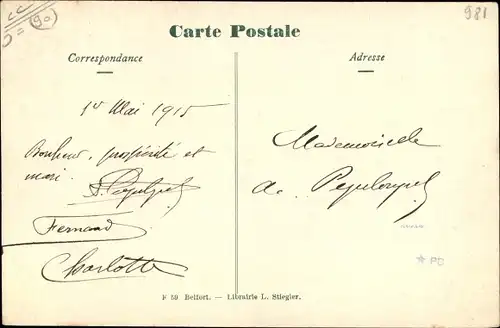 981
Carte Postale
Correspondance
Adresse
1er Mai 1915
Bonheur, prospérité et
mari.
Fernand
Charlotte
Mademoiselle
de
PD
F 59 Belfort. — Librairie L. Stiegler.